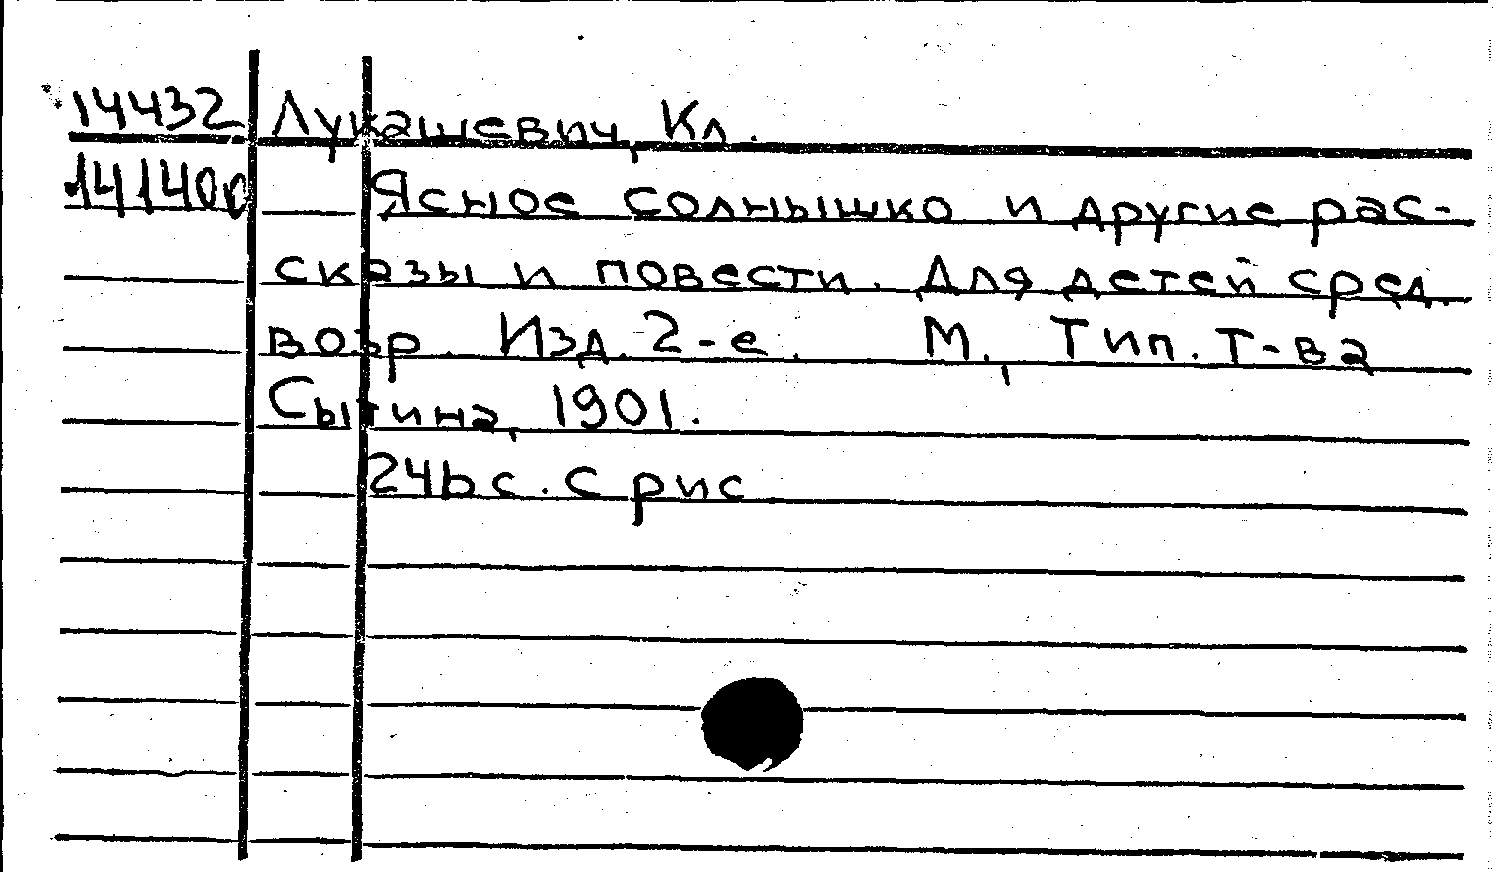 14432 Лукашевич, Кл.
14140 Ясное солнышко и другие рас-
сказы и повести. Для детей сред.
возр. Изд. 2-е. М., Тип. Т-ва
Сытина, 1901.
246 с. с рис